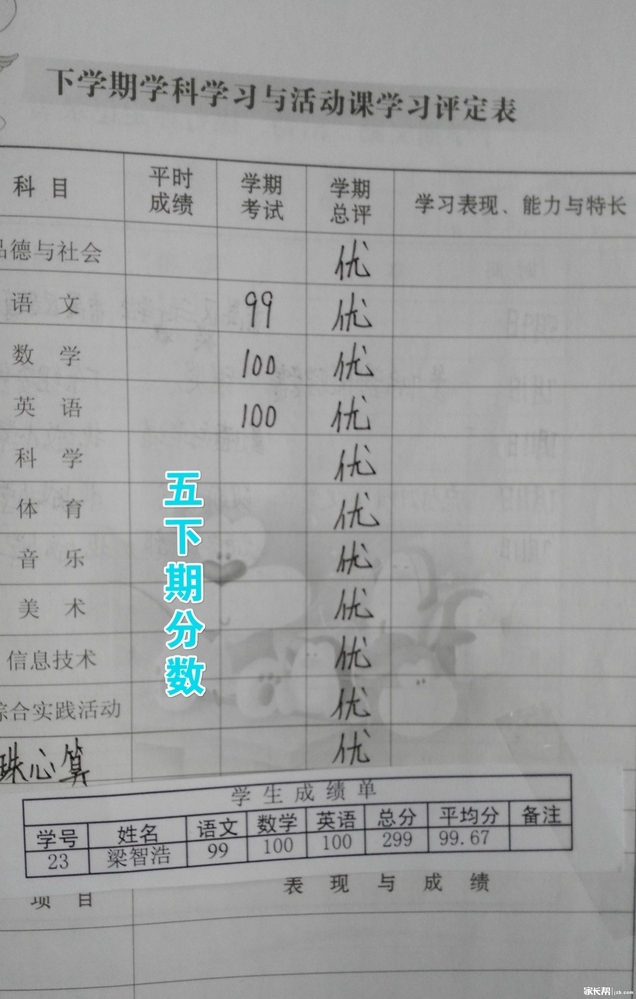 下学期学科学习与活动课学习评定表
科目 平时成绩 学期考试 学期总评 学习表现、能力与特长
品德与社会 优
语文 99 优
数学 100 优
英语 100 优
科学 优
体育 优
音乐 优
美术 优
信息技术 优
综合实践活动 优
珠心算 优
五下期分数
学生成绩单
学号 姓名 语文 数学 英语 总分 平均分 备注
23 梁智浩 99 100 100 299 99.67
项目 表现与成绩
家长帮 jzb.com